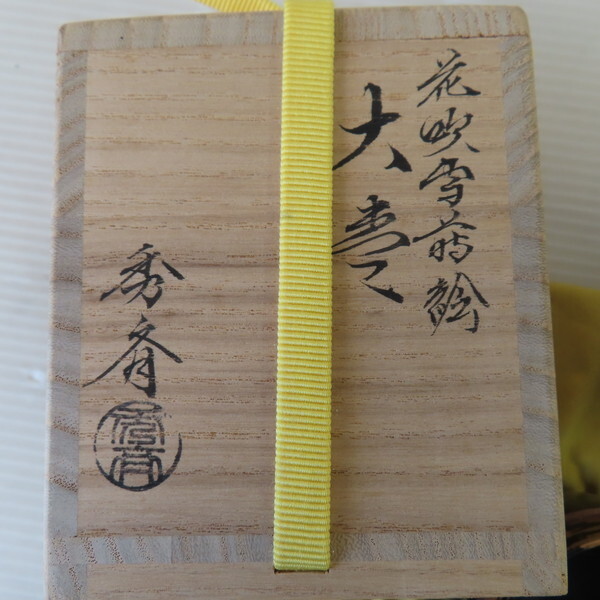 花吹雪蒔繪
大棗
秀斉